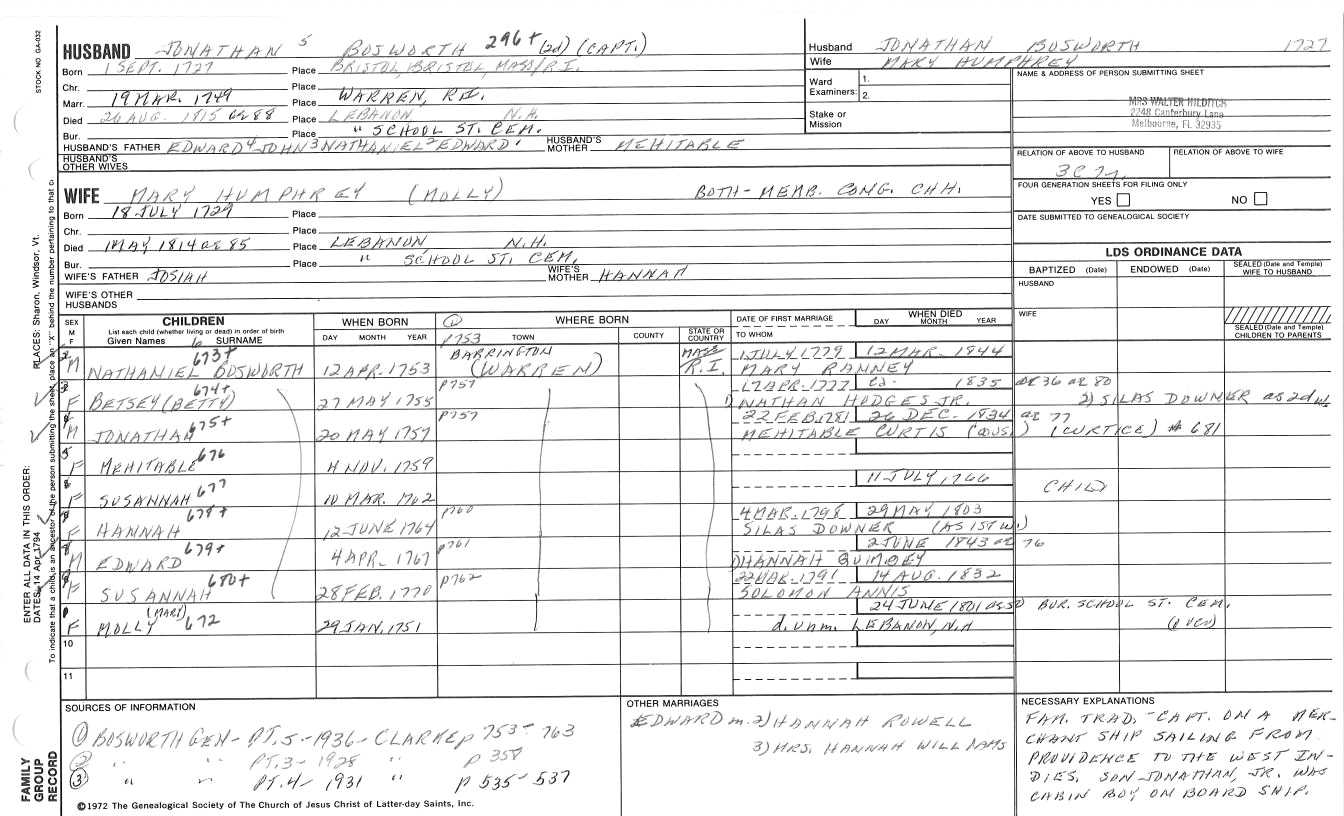 STOCK NO GA-032
HUSBAND JONATHAN 5 BOSWORTH 296+ (2d) (CAPT.)
Born 1 SEPT. 1727 Place BRISTOL, BRISTOL, MASS/R.I.
Chr. Place
Marr. 19 MAR. 1749 Place WARREN, R.I.
Died 26 AUG. 1815 ae 88 Place LEBANON N.H.
Bur. Place " SCHOOL ST. CEM.
HUSBAND'S FATHER EDWARD 4 JOHN 3 NATHANIEL 2 EDWARD 1 HUSBAND'S MOTHER MEHITABLE
HUSBAND'S OTHER WIVES
Husband JONATHAN BOSWORTH 1727
Wife MARY HUMPHREY
Ward Examiners: 1.
2.
Stake or Mission
NAME & ADDRESS OF PERSON SUBMITTING SHEET
MRS WALTER HILDITCH
2248 Canterbury Lane
Melbourne, FL 32935
RELATION OF ABOVE TO HUSBAND RELATION OF ABOVE TO WIFE
3C 7r.
FOUR GENERATION SHEETS FOR FILING ONLY
YES NO
DATE SUBMITTED TO GENEALOGICAL SOCIETY
WIFE MARY HUMPHREY (MOLLY) BOTH - MEMB. CONG. CHH.
Born 18 JULY 1729 Place
Chr. Place
Died MAY 1814 ae 85 Place LEBANON N.H.
Bur. Place " SCHOOL ST. CEM.
WIFE'S FATHER JOSIAH WIFE'S MOTHER HANNAH
WIFE'S OTHER HUSBANDS
LDS ORDINANCE DATA
BAPTIZED (Date) ENDOWED (Date) SEALED (Date and Temple) WIFE TO HUSBAND
HUSBAND
WIFE
SEALED (Date and Temple) CHILDREN TO PARENTS
SEX M F
CHILDREN
List each child (whether living or dead) in order of birth
Given Names 6 SURNAME
WHEN BORN
DAY MONTH YEAR
① p753
WHERE BORN
TOWN COUNTY STATE OR COUNTRY
DATE OF FIRST MARRIAGE
TO WHOM
WHEN DIED
DAY MONTH YEAR
2 M NATHANIEL BOSWORTH 673+ 12 APR. 1753 BARRINGTON (WARREN) MASS R.I. 1 JULY 1779 12 MAR. 1844
MARY RANNEY
3 F BETSEY (BETTY) 674+ 27 MAY 1755 p757 17 APR. 1777 ca. 1835 or 36 ae 80
1) NATHAN HODGES JR. 2) SILAS DOWNER as 2d w.
4 M JONATHAN 675+ 20 MAY 1757 p757 22 FEB. 1781 26 DEC. 1834 ae 77
MEHITABLE CURTIS (cous.) (CURTICE) # 681
5 F MEHITABLE 676 4 NOV. 1759
F SUSANNAH 677 10 MAR. 1762 11 JULY, 1766 CHILD
F HANNAH 678+ 12 JUNE 1764 p760 4 MAR. 1798 29 MAY 1803
SILAS DOWNER (AS 1ST W.)
8 M EDWARD 679+ 4 APR. 1767 p761 2 JUNE 1843 ae 76
1) HANNAH QUIMBEY
F SUSANNAH 680+ 28 FEB. 1770 p762 22 MAR. 1791 14 AUG. 1832
SOLOMON ANNIS
1 F MOLLY (MARY) 672 29 JAN. 1751 24 JUNE 1801 ae 50 BUR. SCHOOL ST. CEM.
d. unm. LEBANON, N.H
10
11
SOURCES OF INFORMATION
① BOSWORTH GEN - PT. 5 - 1936 - CLARKE p 753 - 763
② " " PT. 3 - 1928 " p 358
③ " " PT. 4 - 1931 " p 535 - 537
OTHER MARRIAGES
EDWARD m. 2) HANNAH ROWELL
3) MRS. HANNAH WILLIAMS
NECESSARY EXPLANATIONS
FAM. TRAD. - CAPT. ON A MER-
CHANT SHIP SAILING FROM
PROVIDENCE TO THE WEST IN-
DIES. SON JONATHAN, JR. WAS
CABIN BOY ON BOARD SHIP.
©1972 The Genealogical Society of The Church of Jesus Christ of Latter-day Saints, Inc.
FAMILY GROUP RECORD
ENTER ALL DATA IN THIS ORDER:
DATES: 14 Apr 1794
PLACES: Sharon, Windsor, Vt.
To indicate that a child is an ancestor of the person submitting the sheet, place an "X" behind the number pertaining to that c